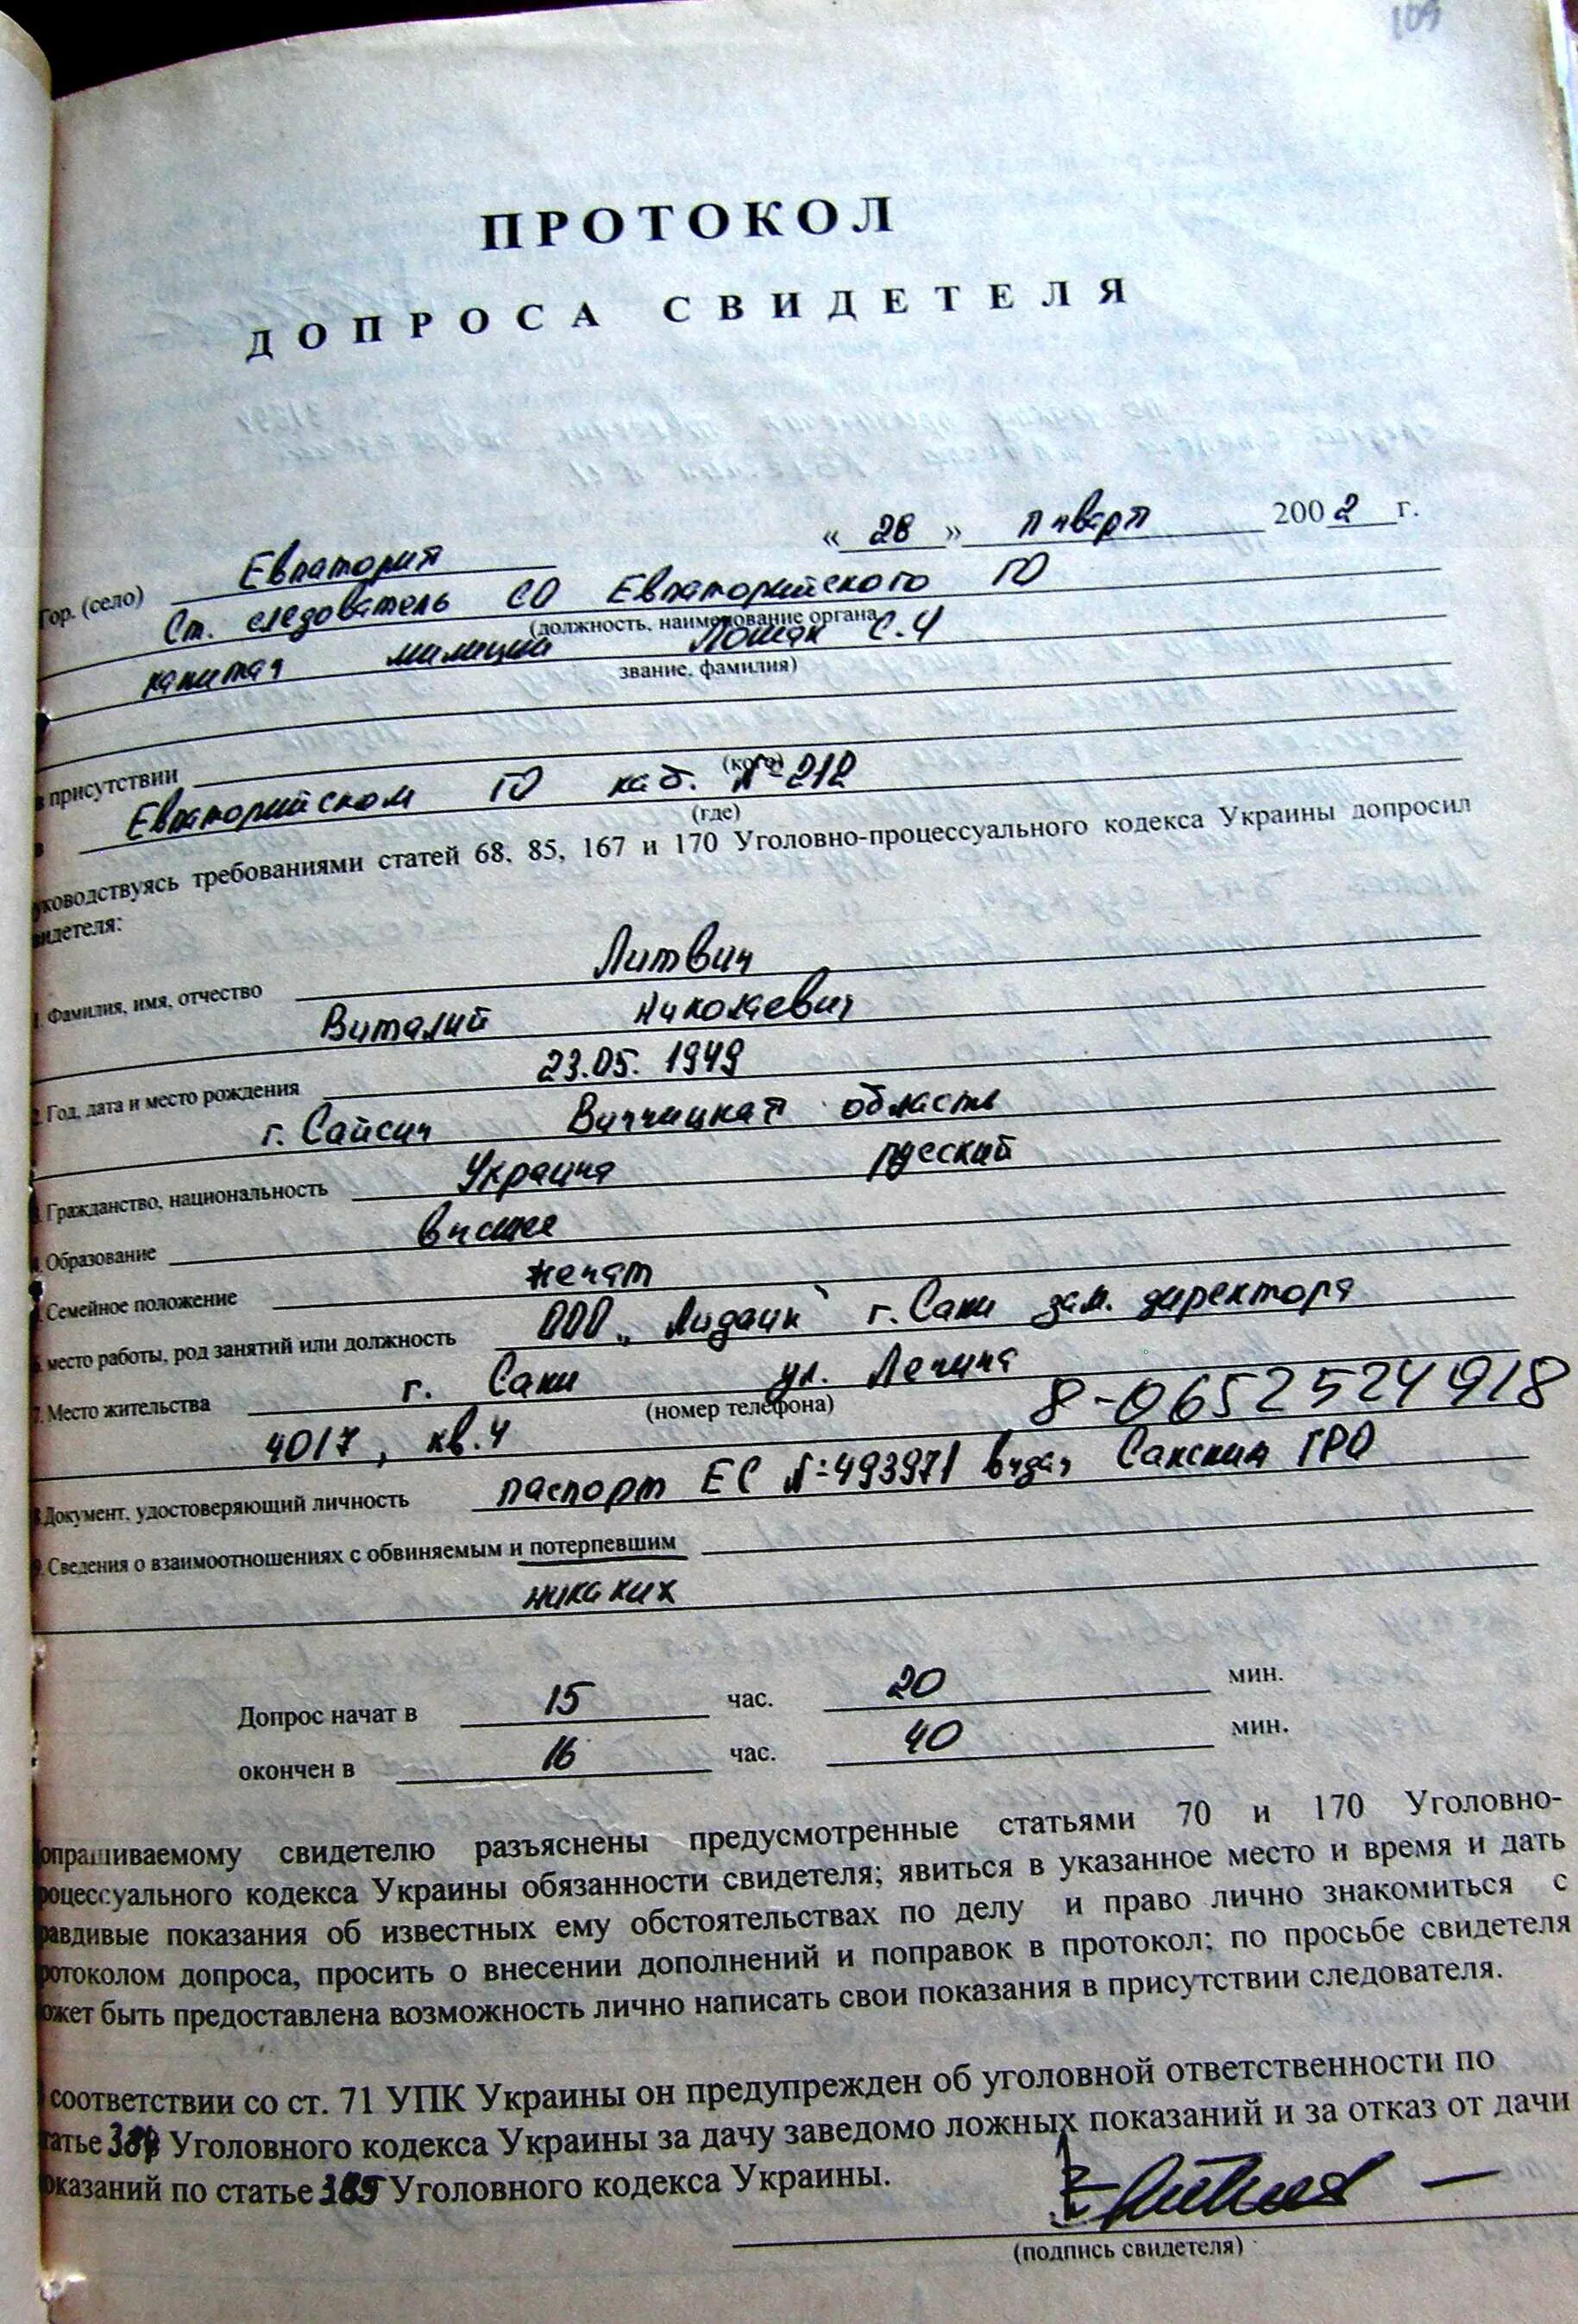 109
ПРОТОКОЛ
ДОПРОСА СВИДЕТЕЛЯ
« 28 » января 2002 г.
Гор. (село) Евпатория
Ст. следователь СО Евпаторийского ГО
(должность, наименование органа
капитан милиции Лошак С.Ч
звание, фамилия)
в присутствии
(кого)
в Евпаторийском ГО каб. № 212
(где)
уководствуясь требованиями статей 68, 85, 167 и 170 Уголовно-процессуального кодекса Украины допросил
видетеля:
1. Фамилия, имя, отчество Литвин
Виталий Николаевич
2. Год, дата и место рождения 23.05. 1949
г. Сайсин Винницкая область
Гражданство, национальность Украина русский
Образование высшее
Семейное положение женат
место работы, род занятий или должность ООО „Лидаик" г. Саки зам. директора
7. Место жительства г. Саки ул. Ленина
(номер телефона) 8-0652524918
40/7, кв.4
Документ, удостоверяющий личность паспорт ЕС №493971 выдан Сакским ГРО
9. Сведения о взаимоотношениях с обвиняемым и потерпевшим
никаких
Допрос начат в 15 час. 20 мин.
окончен в 16 час. 40 мин.
опрашиваемому свидетелю разъяснены предусмотренные статьями 70 и 170 Уголовно-
роцессуального кодекса Украины обязанности свидетеля; явиться в указанное место и время и дать
равдивые показания об известных ему обстоятельствах по делу и право лично знакомиться с
ротоколом допроса, просить о внесении дополнений и поправок в протокол; по просьбе свидетеля
ожет быть предоставлена возможность лично написать свои показания в присутствии следователя.
соответствии со ст. 71 УПК Украины он предупрежден об уголовной ответственности по
татье 384 Уголовного кодекса Украины за дачу заведомо ложных показаний и за отказ от дачи
оказаний по статье 385 Уголовного кодекса Украины.
(подпись свидетеля)